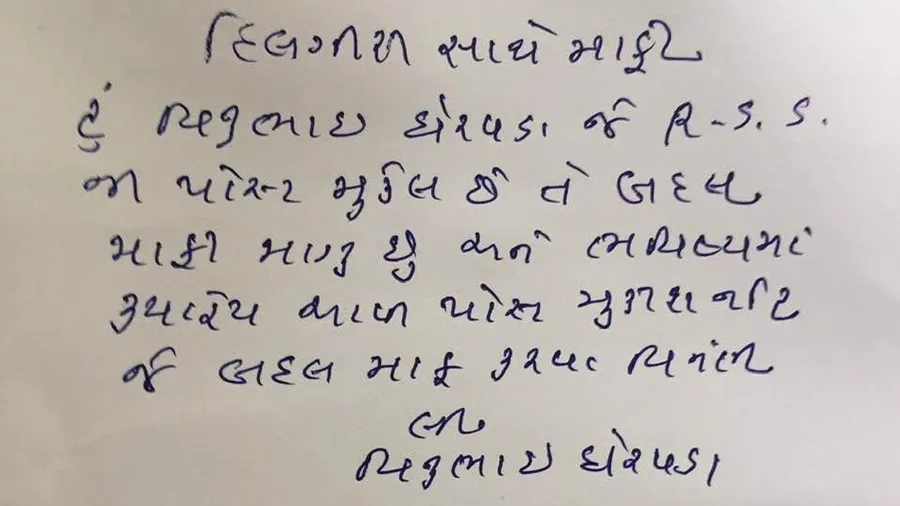 દિલગીરી સાથે માફી
હું વિકુભાઇ ઘોરપડા જે R.S.S.
ના પોસ્ટ મુકેલ છે તે બદલ
માફી માંગુ છું અને ભવિષ્યમાં
ક્યારેય આવી પોસ્ટ મુકીશ નહિ
જે બદલ માફ કરવા વિનંતી
લી
વિકુભાઇ ઘોરપડા